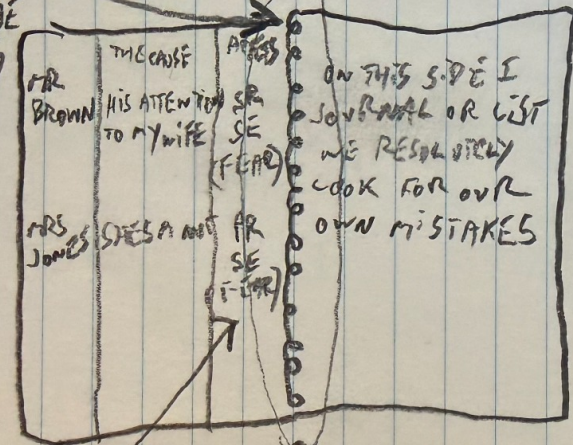 MR
BROWN
THE CAUSE
HIS ATTENTION
TO MY WIFE
SR
SE
(FEAR)
MRS
JONES
SHES A NUT
SE
FEAR)
ON THIS SIDE I
JOURNAL OR LIST
WE RESOLUTELY
LOOK FOR OUR
OWN MISTAKES